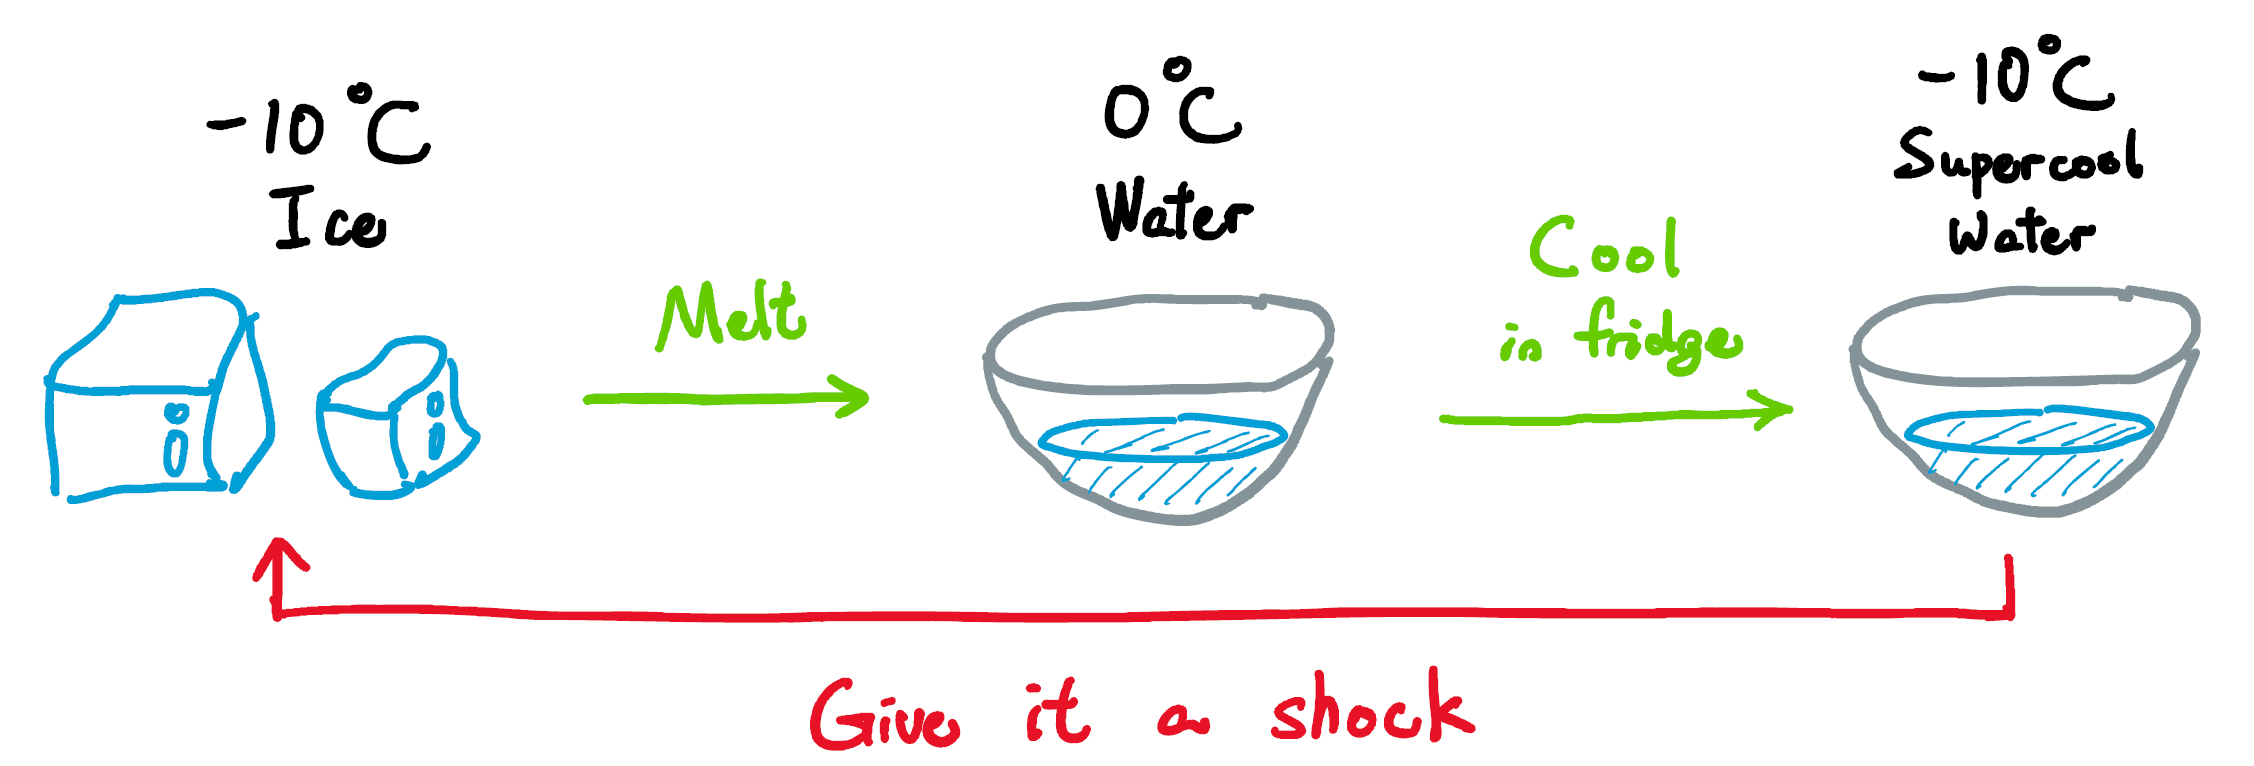 -10°C
Ice
Melt
0°C
Water
Cool
in fridge
-10°C
Supercool
Water
Give it a shock